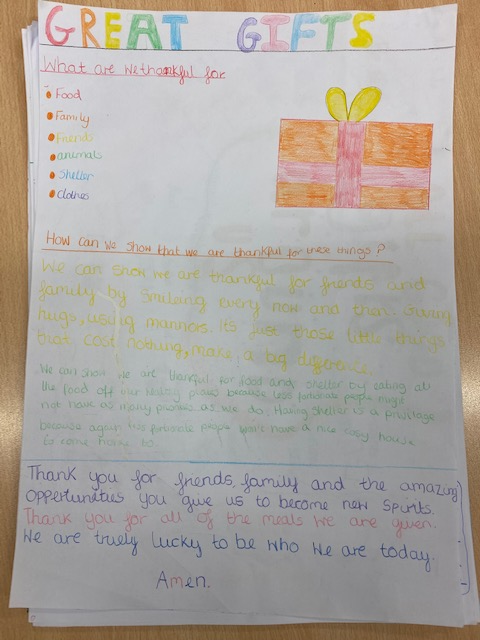 GREAT GIFTS
What are we thankful for
Food
Family
Friends
animals
Shelter
Clothes
How can we show that we are thankful for these things?
We can show we are thankful for friends and
family by smileing every now and then. Giving
hugs, using manners. Its just those little things
that cost nothing, make, a big difference.
We can show we are thankful for food and shelter by eating all
the food off our healthy plates because less fortunate people might
not have as many as we do. Having shelter is a
because again less fortunate people won't have a nice cosy house
to come home to.
Thank you for friends, family and the amazing
oppertunities you give us to become new spirits.
Thank you for all of the meals we are given.
We are truely lucky to be who we are today.
Amen.